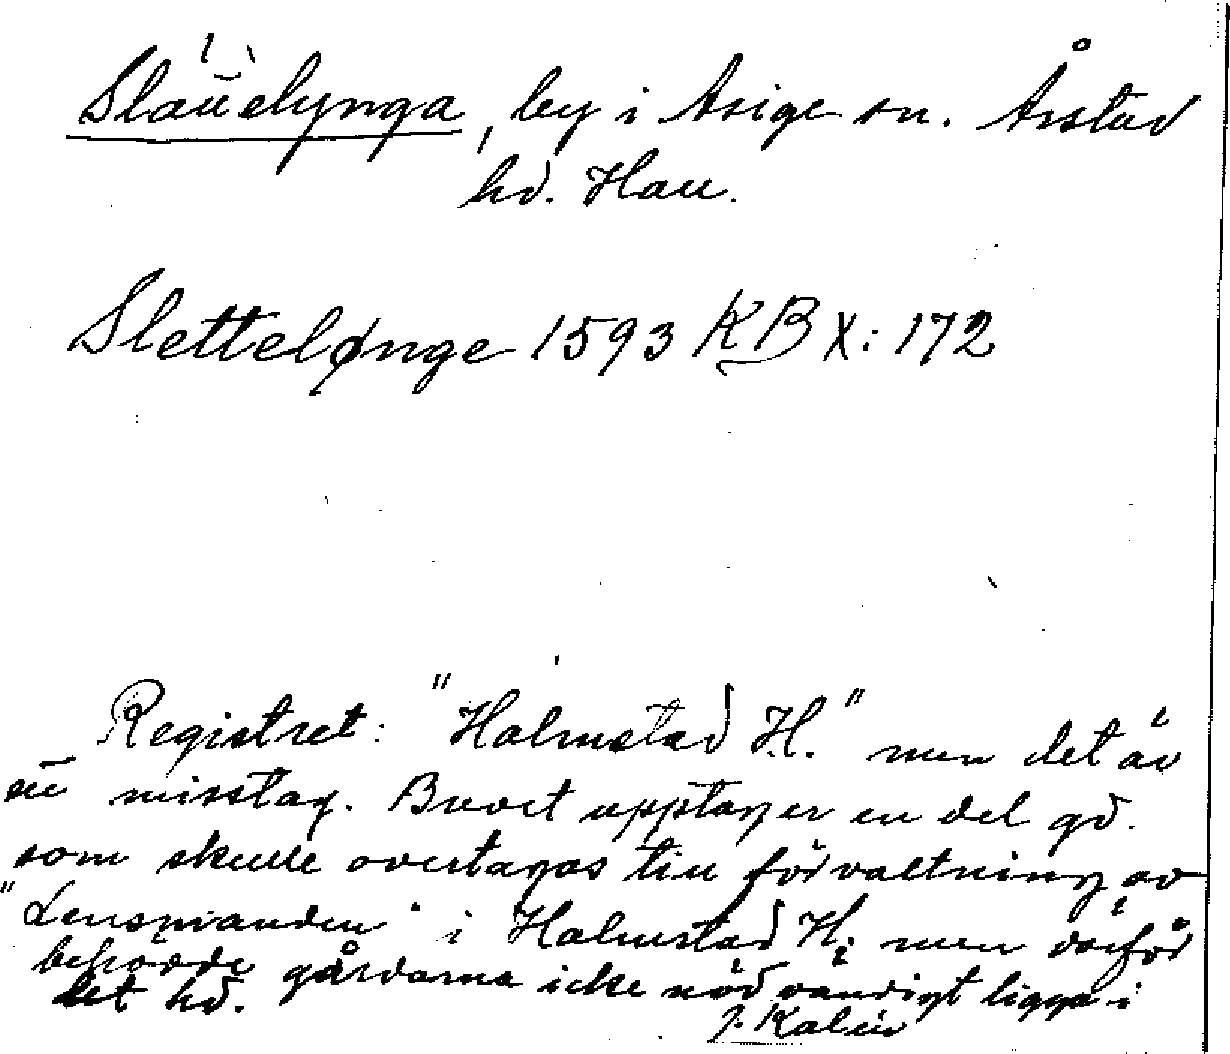 Slättelynga, by i Asige sn. Årstad
hd. Hall.
Slettelønge 1593 KB X: 172
Registret: "Halmstad H." men det är
ett misstag. Brevet upptager en del gd.
som skulle overtagas till förvaltning av
"Lensmanden" i Halmstad H; men därför
behövde gårdarna icke nödvändigt ligga i
det hd.
J. Kalén